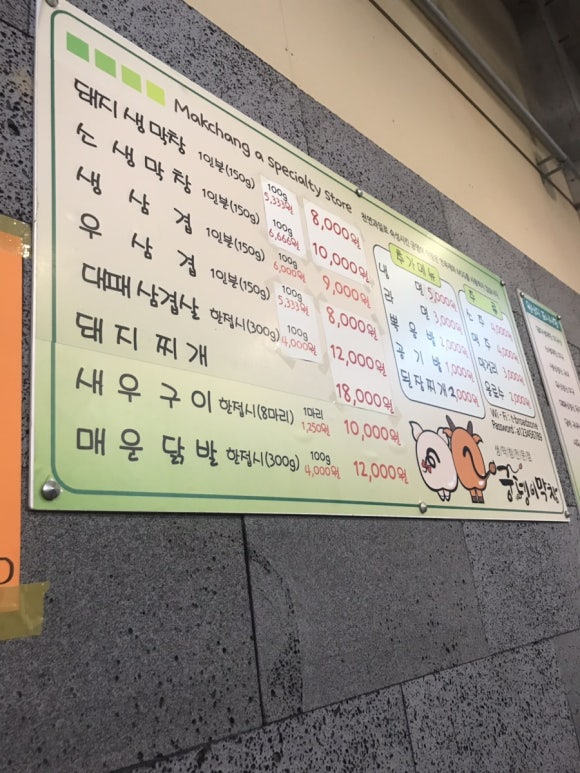 Makchang a specialty store
돼지생막창 1인분(150g) 100g 5,333원 8,000원
소생막창 1인분(150g) 100g 6,666원 10,000원
생삼겹 1인분(150g) 100g 6,000원 9,000원
우삼겹 1인분(150g) 100g 5,333원 8,000원
대패삼겹살 한접시(300g) 100g 4,000원 12,000원
돼지찌개 18,000원
새우구이 한접시(8마리) 1마리 1,250원 10,000원
매운닭발 한접시(300g) 100g 4,000원 12,000원
추가메뉴
냉면 5,000원
라면 3,000원
볶음밥 2,000원
공기밥 1,000원
된장찌개 2,000원
소주 4,000원
맥주 4,000원
막걸리 3,000원
음료수
Wi-Fi : t-broadzone
Password : a123456789
생막창전문점
궁뎅이막창